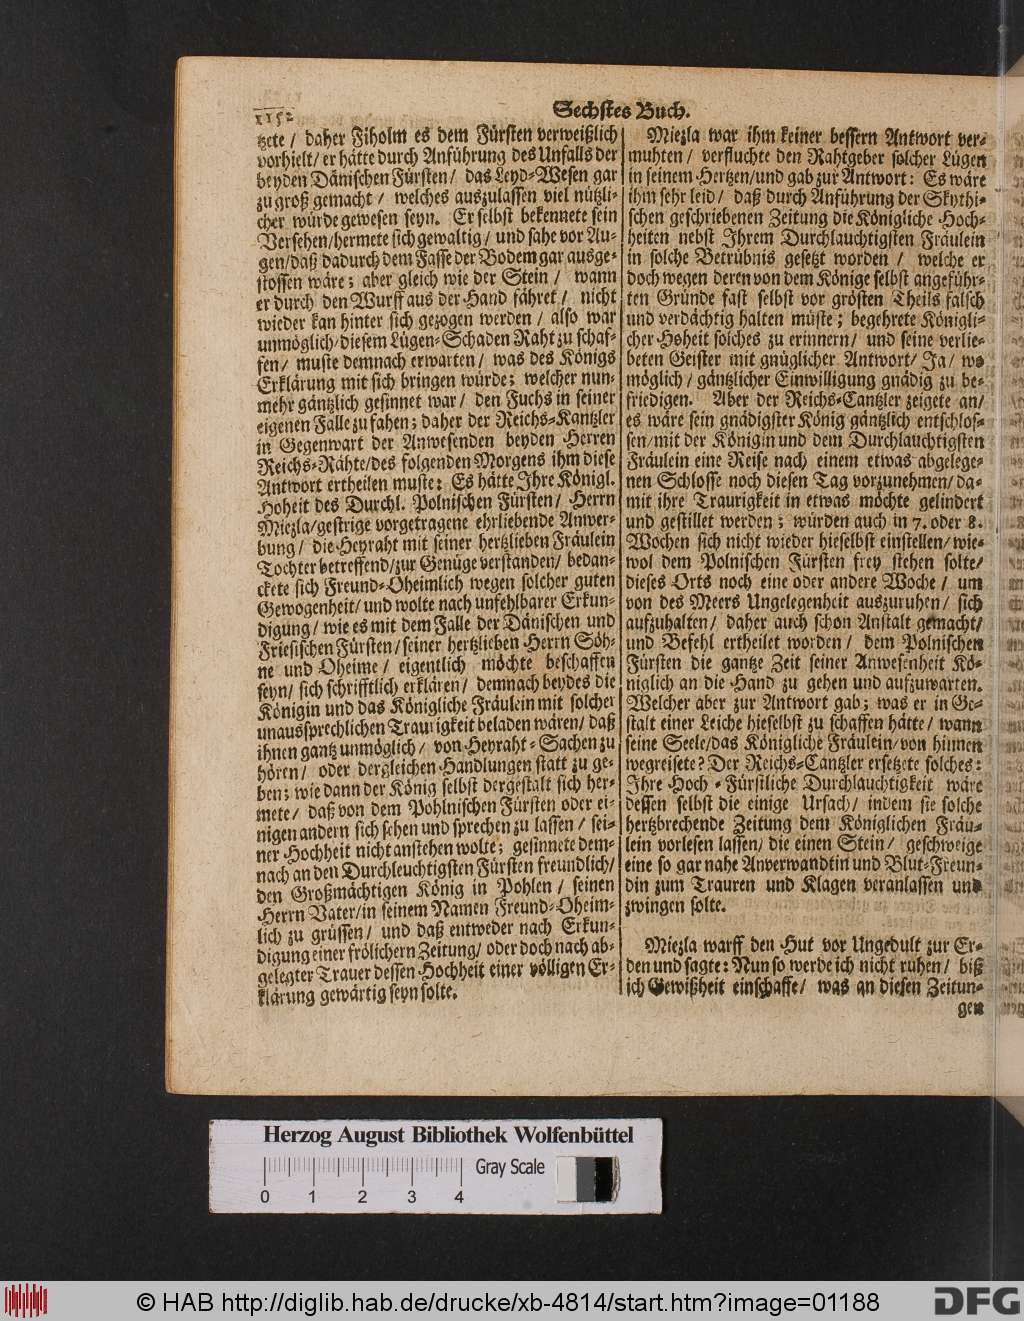 1152
Sechstes Buch.
tzete / daher Fiholm es dem Fürsten verweißlich
vorhielt / er hätte durch Anführung des Unfalls der
beyden Dänischen Fürsten / das Leyd-Wesen gar
zu groß gemacht / welches auszulassen viel nützli-
cher würde gewesen seyn. Er selbst bekennete sein
Versehen / hermete sich gewaltig / und sahe vor Au-
gen / daß dadurch dem Fasse der Bodem gar ausge-
stossen wäre; aber gleich wie der Stein / wann
er durch den Wurff aus der Hand fähret / nicht
wieder kan hinter sich gezogen werden / also war
unmöglich / diesem Lügen-Schaden Raht zu schaf-
fen / muste demnach erwarten / was des Königs
Erklärung mit sich bringen würde; welcher nun-
mehr gäntzlich gesinnet war / den Fuchs in seiner
eigenen Falle zu fahen; daher der Reichs-Kantzler
in Gegenwart der Anwesenden beyden Herren
Reichs-Rähte / des folgenden Morgens ihm diese
Antwort ertheilen muste: Es hätte Ihre Königl.
Hoheit des Durchl. Polnischen Fürsten / Herrn
Miezla / gestrige vorgetragene ehrliebende Anwer-
bung / die Heyraht mit seiner hertzlieben Fräulein
Tochter betreffend / zur Genüge verstanden / bedan-
ckete sich Freund-Oheimlich wegen solcher guten
Gewogenheit / und wolte nach unfehlbarer Erkun-
digung / wie es mit dem Falle der Dänischen und
Friesischen Fürsten / seiner hertzlieben Herrn Söh-
ne und Oheime / eigentlich möchte beschaffen
seyn / sich schrifftlich erklären / demnach beydes die
Königin und das Königliche Fräulein mit solcher
unaussprechlichen Traurigkeit beladen wären / daß
ihnen gantz unmöglich / von Heyraht-Sachen zu
hören / oder dergleichen Handlungen statt zu ge-
ben; wie dann der König selbst dergestalt sich her-
mete / daß von dem Pohlnischen Fürsten oder ei-
nigen andern sich sehen und sprechen zu lassen / sei-
ner Hochheit nicht anstehen wolte; gesinnete dem-
nach an den Durchleuchtigsten Fürsten freundlich /
den Großmächtigen König in Pohlen / seinen
Herrn Vater / in seinem Namen Freund-Oheim-
lich zu grüssen / und daß entweder nach Erkun-
digung einer frölichern Zeitung / oder doch nach ab-
gelegter Trauer dessen Hochheit einer völligen Er-
klärung gewärtig seyn solte.
Miezla war ihm keiner bessern Antwort ver-
muhten / verfluchte den Rahtgeber solcher Lügen
in seinem Hertzen / und gab zur Antwort: Es wäre
ihm sehr leid / daß durch Anführung der Skythi-
schen geschriebenen Zeitung die Königliche Hoch-
heiten nebst Ihrem Durchlauchtigsten Fräulein
in solche Betrübnis gesetzt worden / welche er
doch wegen deren von dem Könige selbst angeführ-
ten Gründe fast selbst vor grösten Theils falsch
und verdächtig halten müste; begehrete Königli-
cher Hoheit solches zu erinnern / und seine verlie-
beten Geister mit gnüglicher Antwort / Ja / wo
möglich / gäntzlicher Einwilligung gnädig zu be-
friedigen. Aber der Reichs-Cantzler zeigete an /
es wäre sein gnädigster König gäntzlich entschlos-
sen / mit der Königin und dem Durchlauchtigsten
Fräulein eine Reise nach einem etwas abgelege-
nen Schlosse noch diesen Tag vorzunehmen / da-
mit ihre Traurigkeit in etwas möchte gelindert
und gestillet werden; würden auch in 7. oder 8.
Wochen sich nicht wieder hieselbst einstellen / wie-
wol dem Polnischen Fürsten frey stehen solte /
dieses Orts noch eine oder andere Woche / um
von des Meers Ungelegenheit auszuruhen / sich
aufzuhalten / daher auch schon Anstalt gemacht /
und Befehl ertheilet worden / dem Polnischen
Fürsten die gantze Zeit seiner Anwesenheit Kö-
niglich an die Hand zu gehen und aufzuwarten.
Welcher aber zur Antwort gab; was er in Ge-
stalt einer Leiche hieselbst zu schaffen hätte / wann
seine Seele / das Königliche Fräulein / von hinnen
wegreisete? Der Reichs-Cantzler ersetzete solches:
Ihre Hoch-Fürstliche Durchlauchtigkeit wäre
dessen selbst die einige Ursach / indem sie solche
hertzbrechende Zeitung dem Königlichen Fräu-
lein vorlesen lassen / die einen Stein / geschweige
eine so gar nahe Anverwandtin und Blut-Freun-
din zum Trauren und Klagen veranlassen und
zwingen solte.
Miezla warff den Hut vor Ungedult zur Er-
den und sagte: Nun so werde ich nicht ruhen / biß
ich Gewißheit einschaffe / was an diesen Zeitun-
gen
Herzog August Bibliothek Wolfenbüttel
Gray Scale
0 1 2 3 4
© HAB http://diglib.hab.de/drucke/xb-4814/start.htm?image=01188
DFG